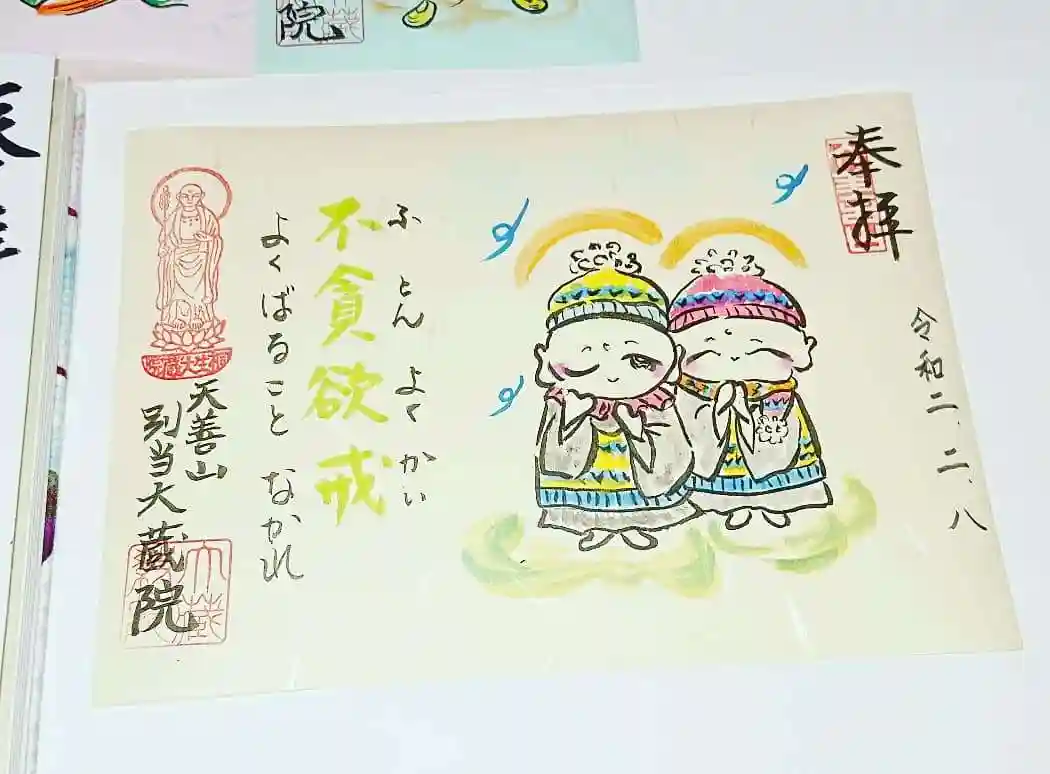 奉拝
令和二.二.八
ふとんよくかい
不貪欲戒
よくばること なかれ
天善山
別当大蔵院
院